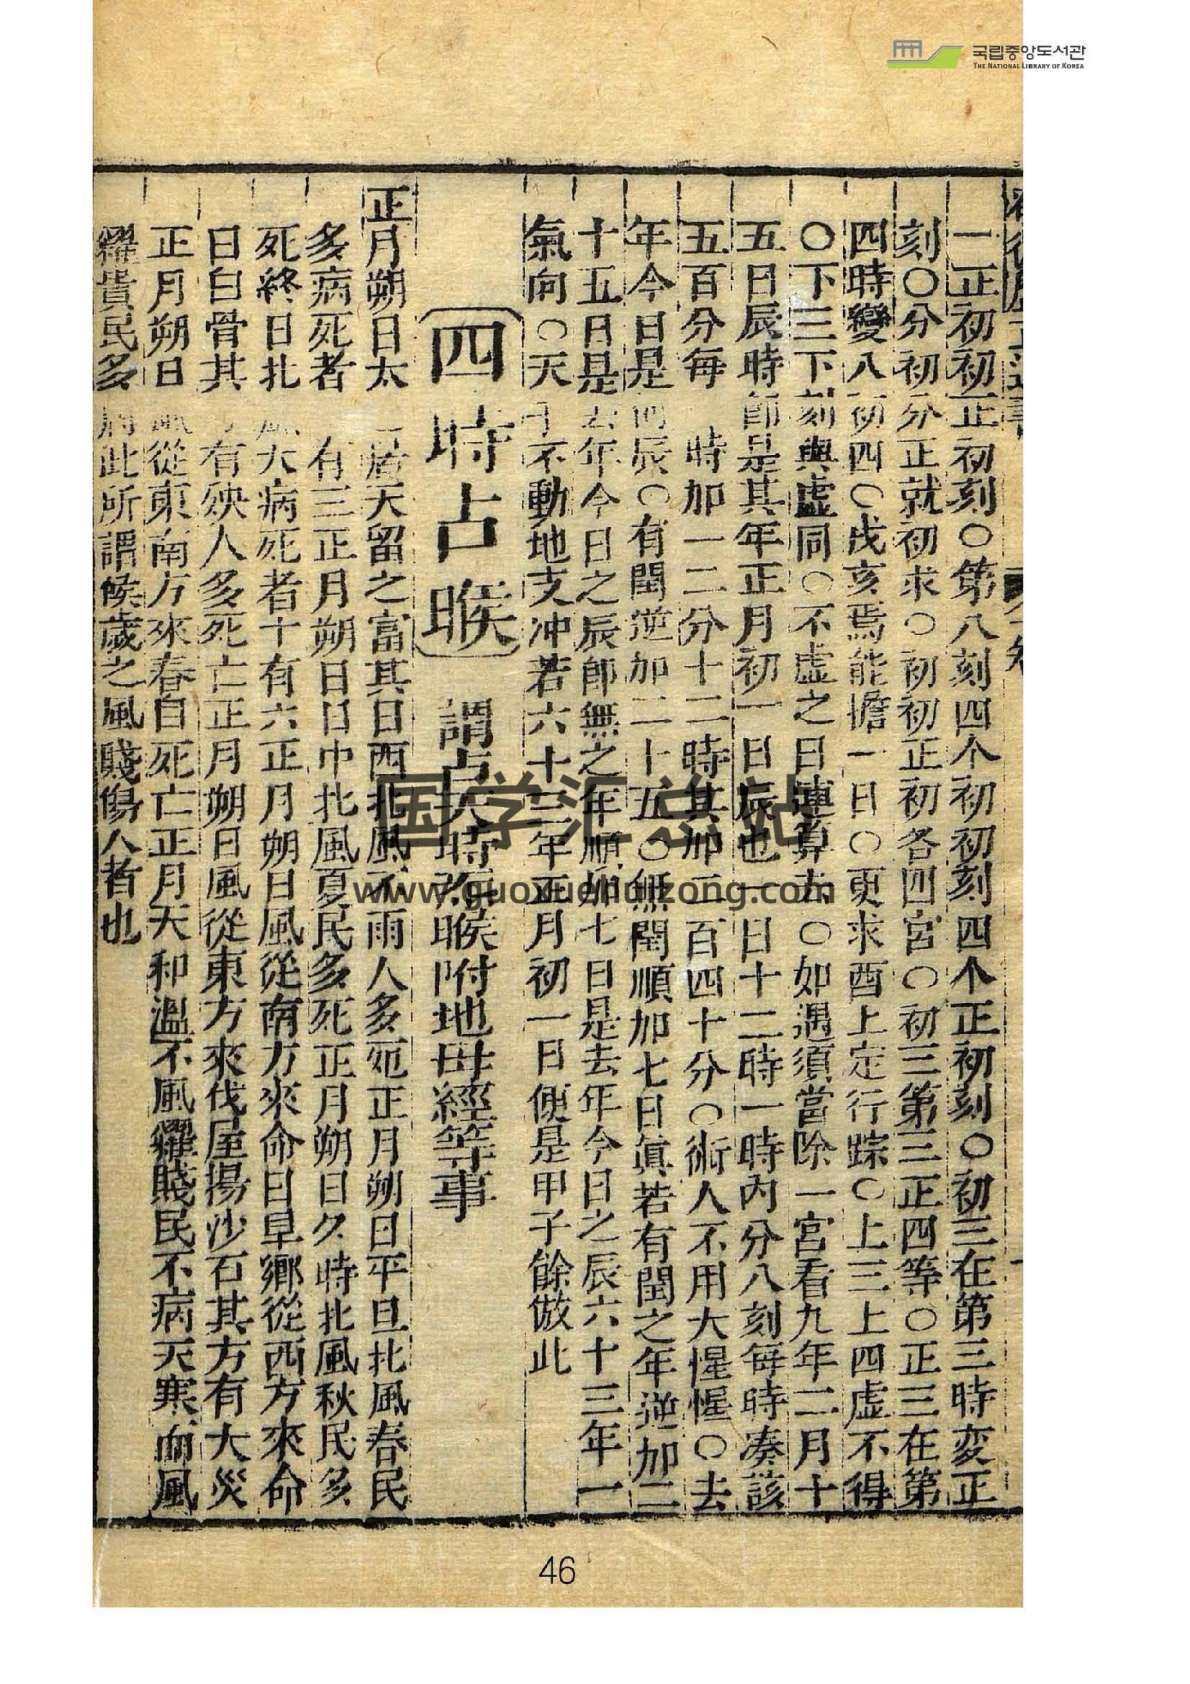 국립중앙도서관
THE NATIONAL LIBRARY OF KOREA
一正初初正初刻○第八刻四个初初刻四个正初刻○初三在第三時変正
刻○分初分正就初求○初初正初各四宮○初三第三正四等○正三在第
四時變八初四○戌亥焉能擔一日○更求酉上定行踪○上三上四虚不得
○下三下刻與虚同○不虚之日連算去○如遇須當除一宮看九年二月十
五日辰時節是其年正月初一日辰也一日十二時一時內分八刻每時凑該
五百分每 時加一二分十二時其加二百四十分○術人不用大惺惺○去
年今日是何辰○有閏逆加二十五○無閏順加七日眞若有閏之年逆加二
十五日是去年今日之辰節無之年順加七日是去年今日之辰六十三年一
氣向○天干不動地支冲若六十三年正月初一日便是甲子餘倣此
四時占睺 謂占天時海睺附地母經等事
正月朔日太一居天留之富其日西北風不雨人多死正月朔日平旦北風春民
多病死者 有三正月朔日日中北風夏民多死正月朔日久時北風秋民多
死終日北風大病死者十有六正月朔日風從南方來命曰旱鄉從西方來命
曰白骨其 有殃人多死亡正月朔日風從東方來伐屋揚沙石其方有大災
正月朔日風從東南方來春自死亡正月天和溫不風糴賤民不病天寒而風
糴貴民多病此所謂候歲之風賤傷人者也
国学汇总站
www.guoxuehuizong.com
46